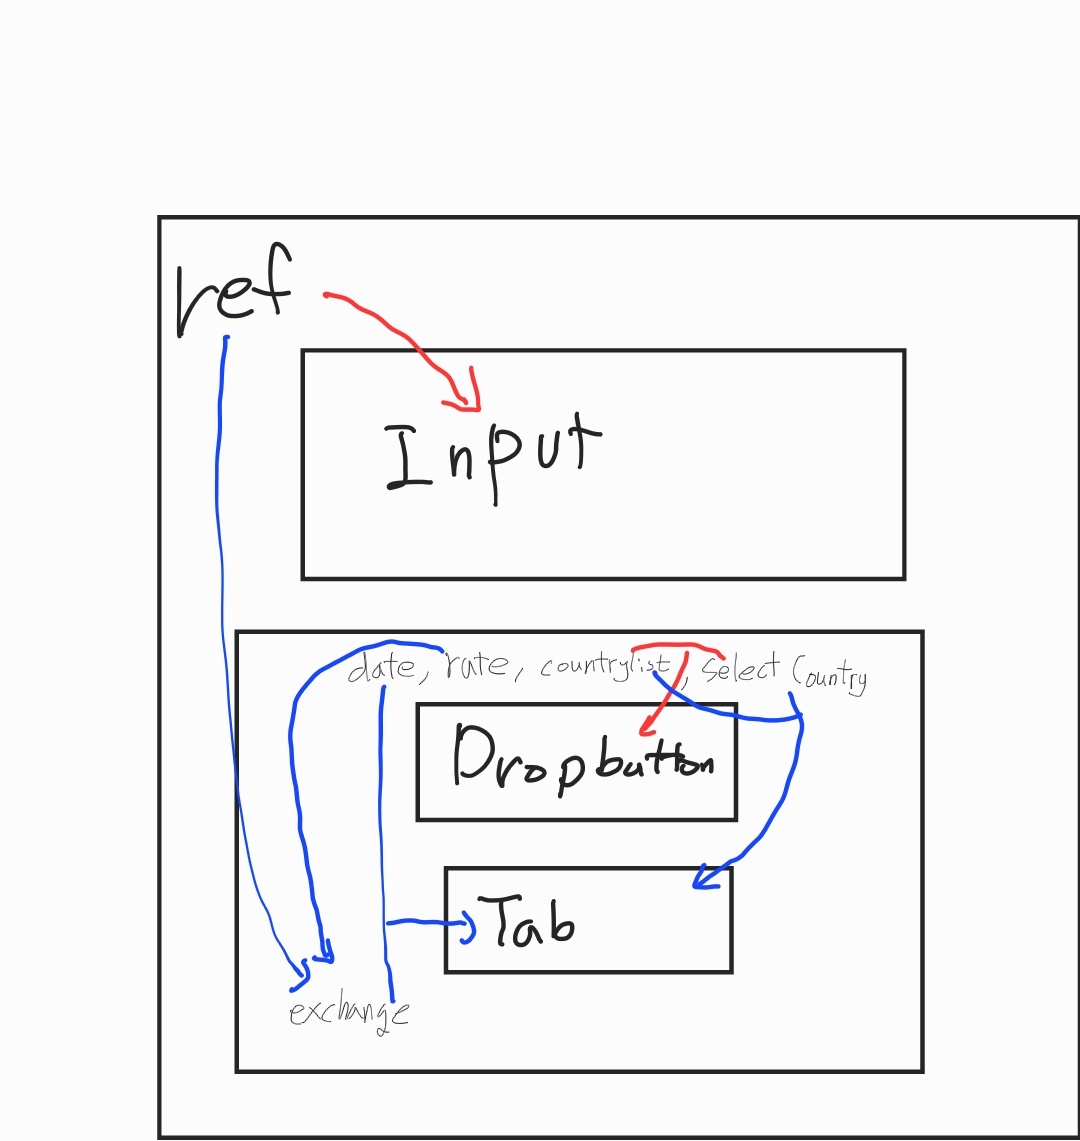 ref
Input
date, rate, countrylist, select Country
Dropbutton
Tab
exchange